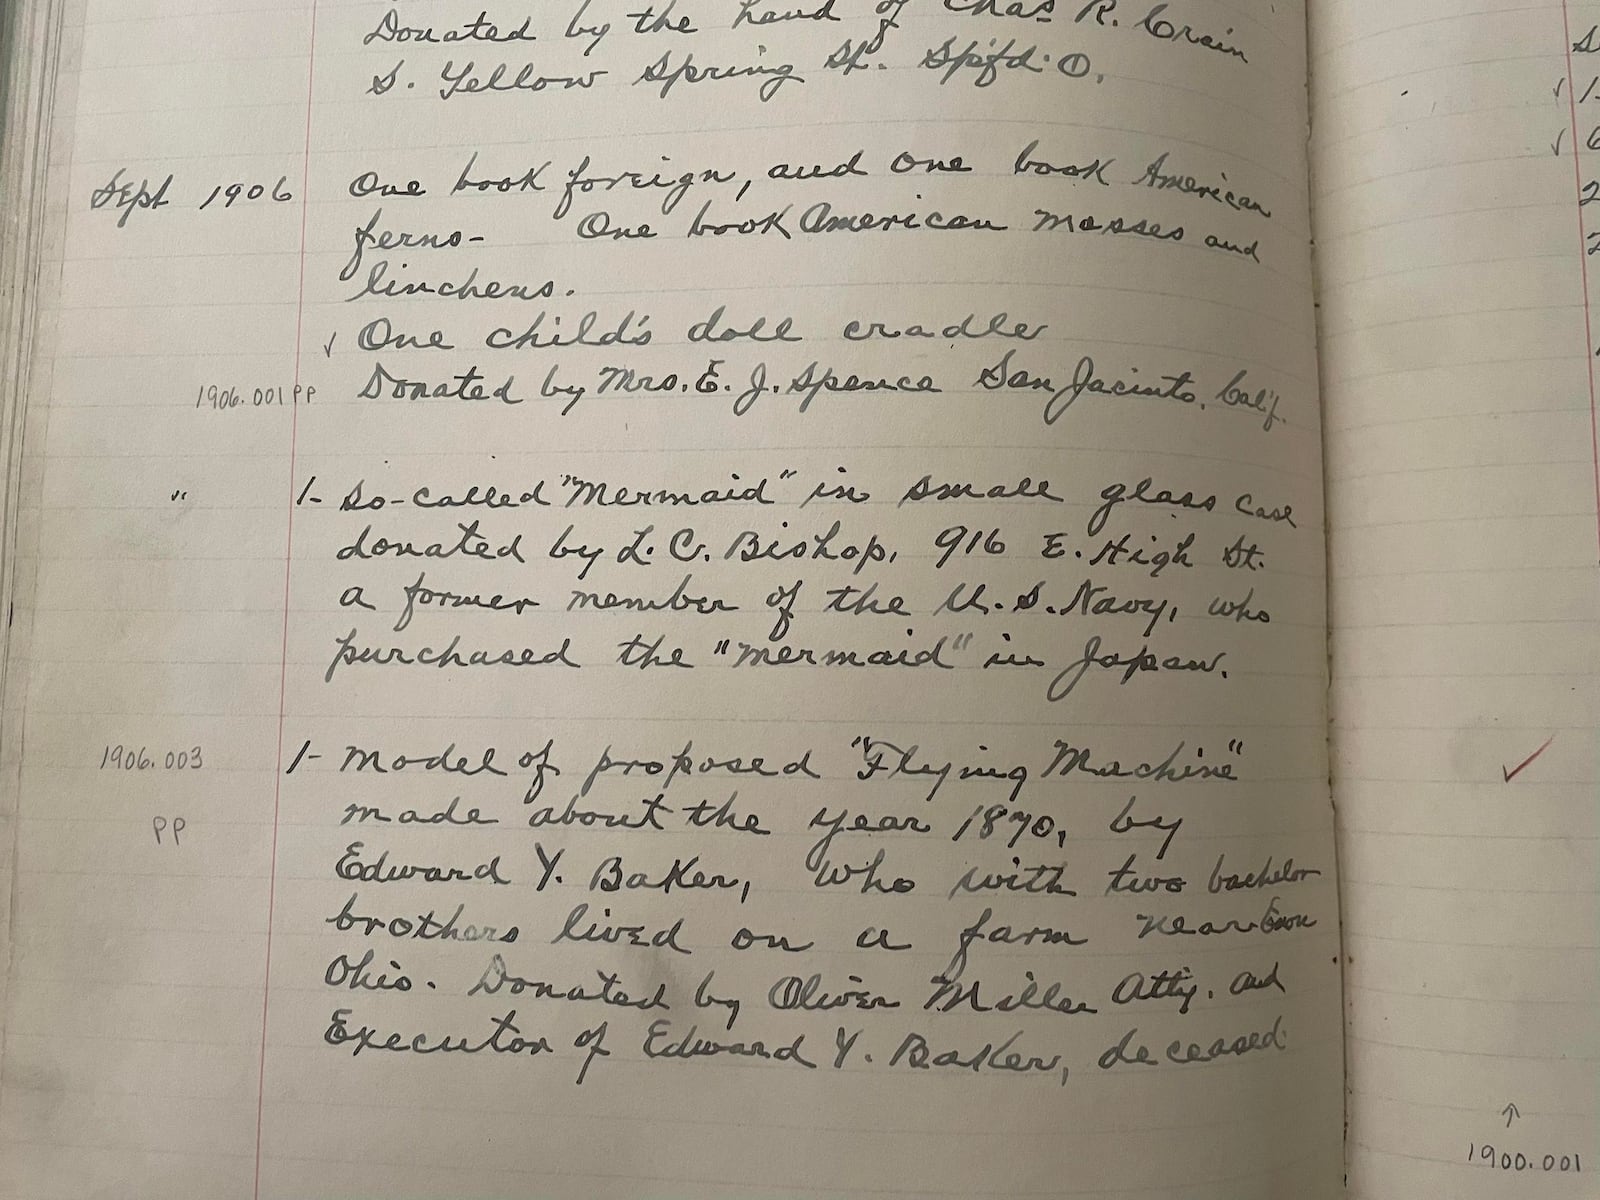 Donated by the hand of Chas R. Crain
S. Yellow Spring St. Spifd. O.
Sept 1906 One book foreign, and One book American
ferns- One book American Mosses and
linchens.
√ One child's doll cradle
1906.001 PP Donated by Mrs. E. J. Spence San Jacinto, Calif.
" 1- So-called "Mermaid" in small glass case
donated by L. C. Bishop, 916 E. High St.
a former member of the U.S. Navy, who
purchased the "mermaid" in Japan.
1906.003 1- Model of proposed "Flying Machine"
PP made about the year 1870, by
Edward Y. Baker, who with two bachelor
brothers lived on a farm near Enon
Ohio. Donated by Oliver Miller Atty. and
Executor of Edward Y. Baker, deceased
↑
1900.001